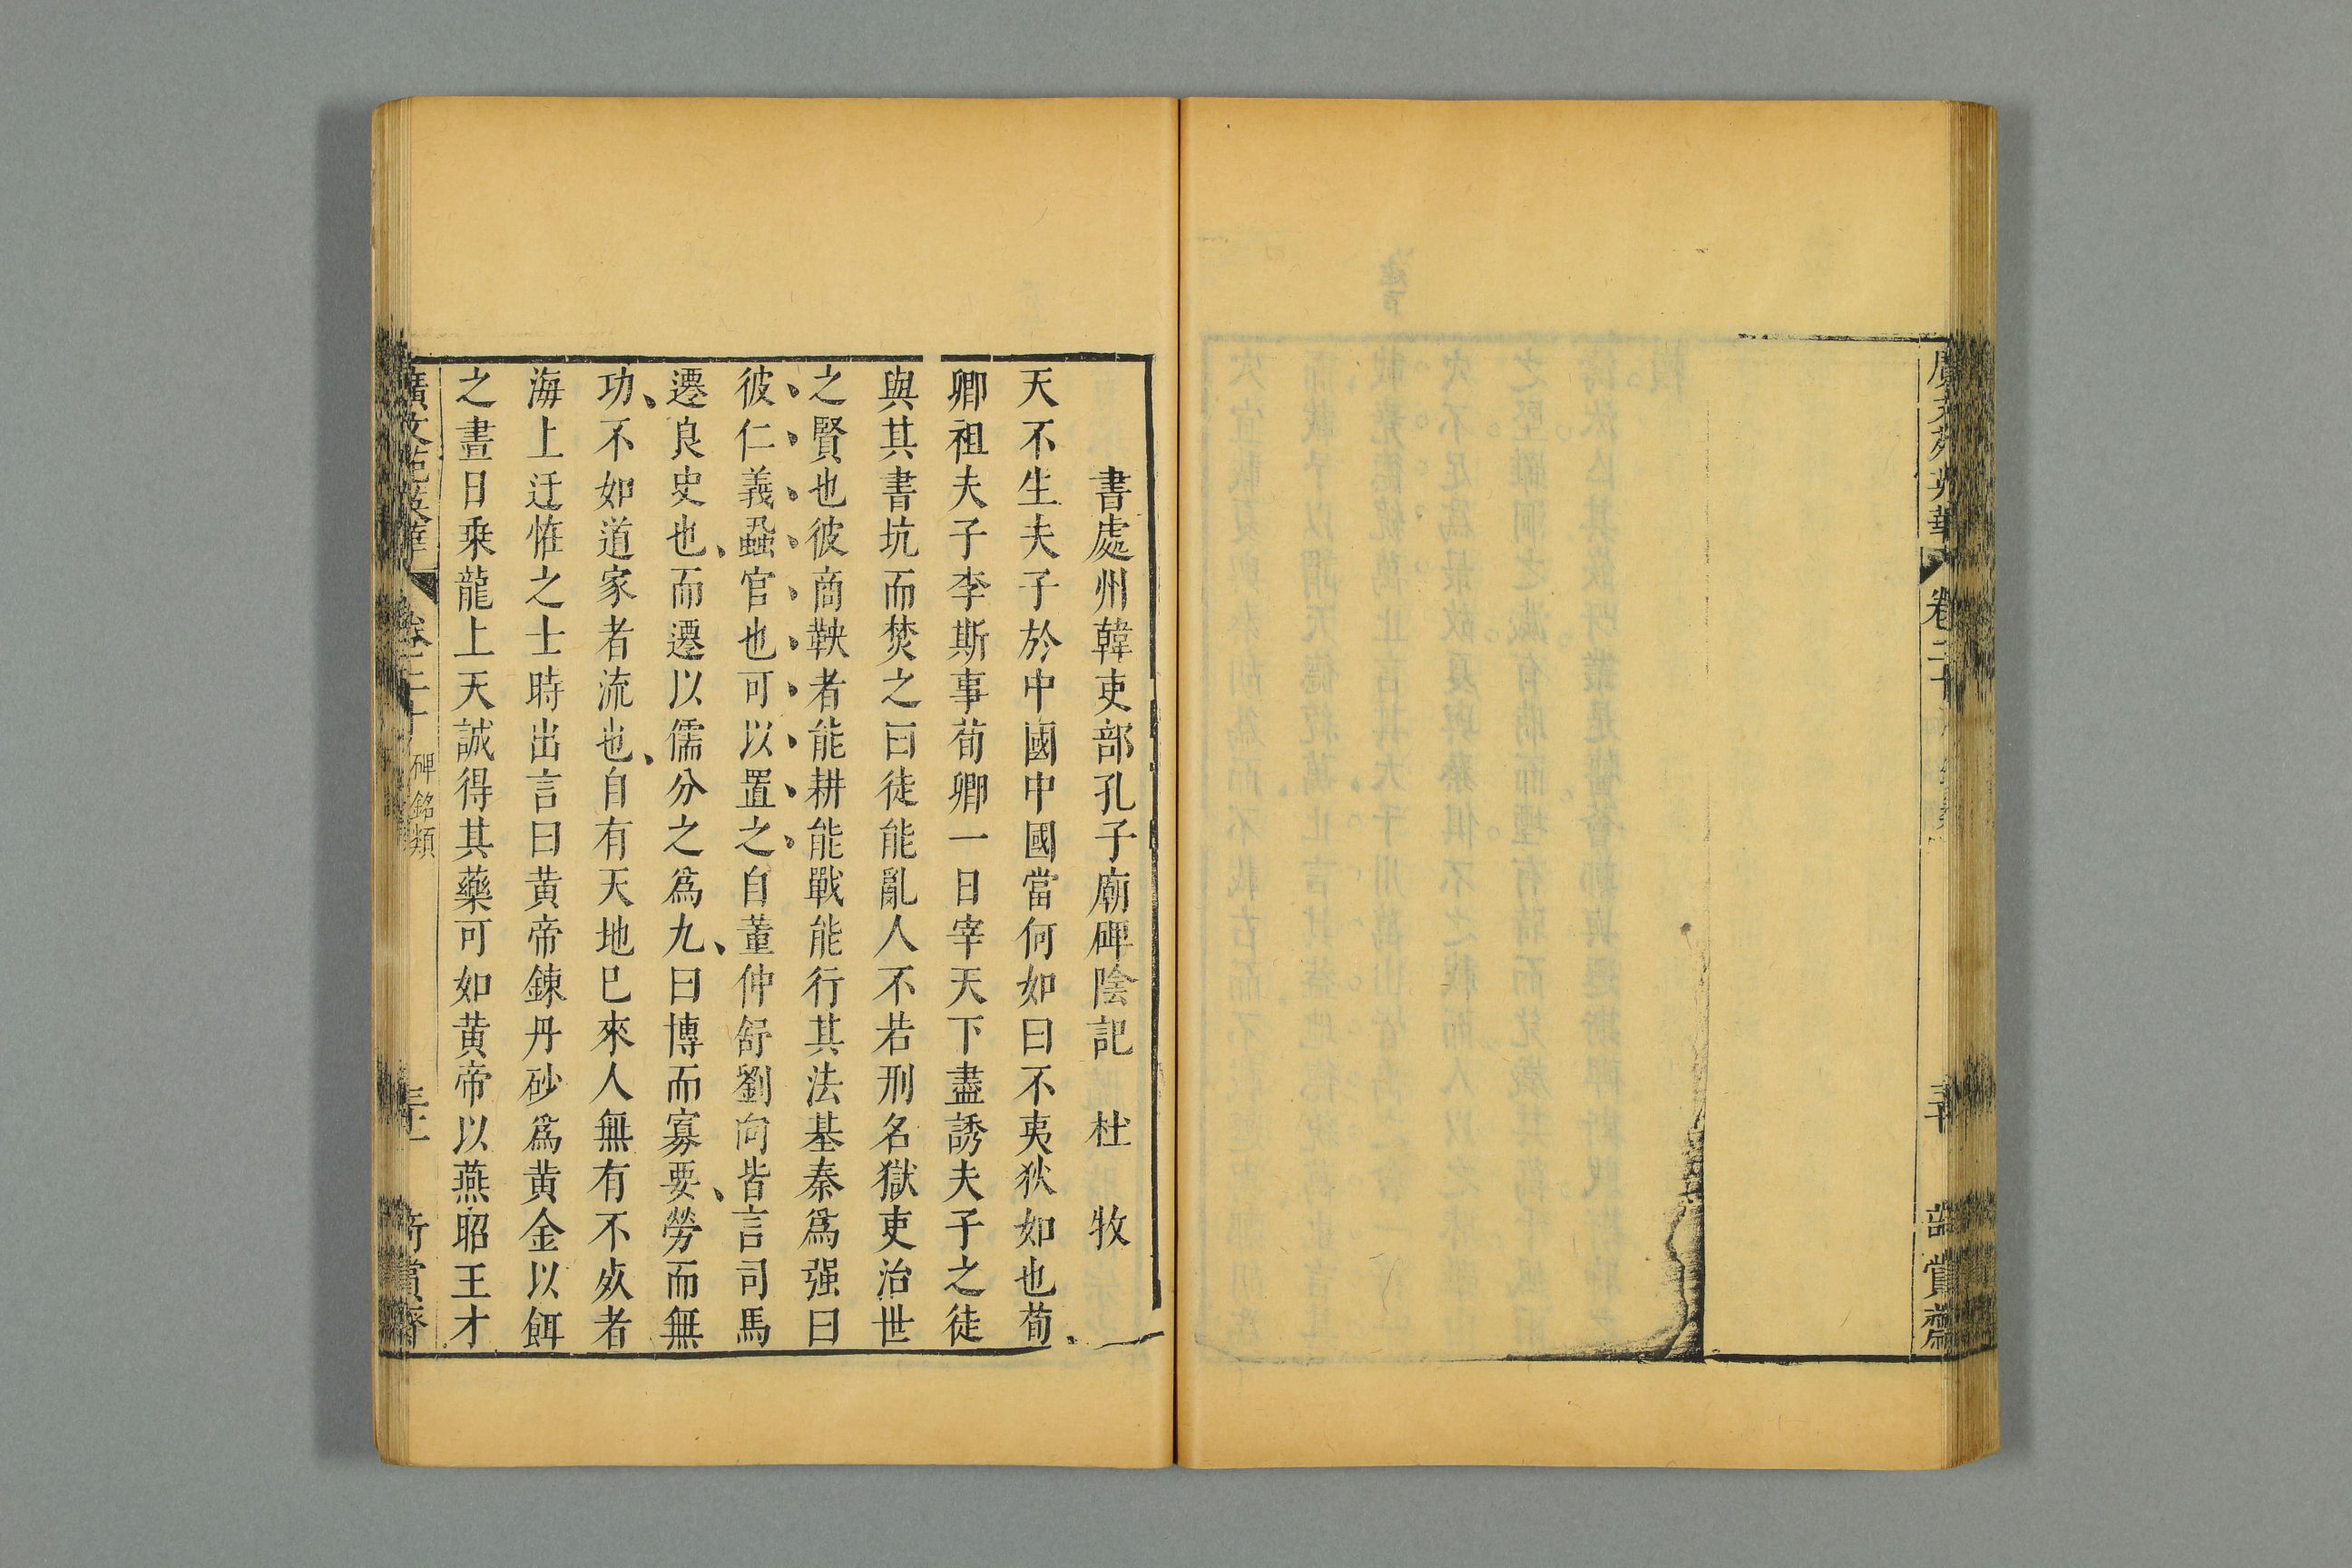 書處州韓吏部孔子廟碑陰記 杜 牧
天不生夫子於中國中國當何如曰不夷狄如也荀
卿祖夫子李斯事荀卿一日宰天下盡誘夫子之徒
與其書坑而焚之曰徒能亂人不若刑名獄吏治世
之賢也彼商鞅者能耕能戰能行其法基秦爲强曰
彼仁義蝨官也可以置之自董仲舒劉向皆言司馬
遷良史也而遷以儒分之爲九曰博而寡要勞而無
功不如道家者流也自有天地已來人無有不死者
海上迂惟之士時出言曰黄帝鍊丹砂爲黄金以餌
之晝日乘龍上天誠得其藥可如黄帝以燕昭王才
廣文苑英華 卷二十 碑銘類
賞齋